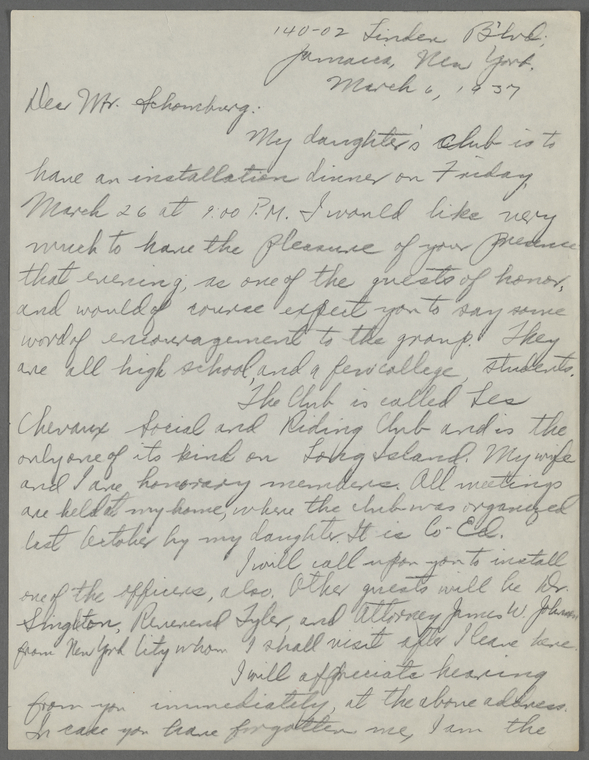 140-02 Linden Blvd,
Jamaica, New York.
March 6, 1937
Dear Mr. Schomburg:
My daughter's club is to
have an installation dinner on Friday,
March 26 at 9:00 P.M. I would like very
much to have the pleasure of your presence
that evening, as one of the guests of honor,
and would of course expect you to say some
word of encouragement to the group. They
are all high school, and a few college, students.
The Club is called Les
Chevaux Social and Riding Club and is the
only one of its kind on Long Island. My wife
and I are honorary members. All meetings
are held at my home, where the club was organized
last October by my daughter. It is Co-Ed.
I will call upon you to install
one of the officers, also. Other guests will be Dr.
Singleton, Reverend Tyler, and Attorney James W. Johnson
from New York City whom I shall visit after I leave here.
I will appreciate hearing
from you immediately, at the above address.
In case you have forgotten me, I am the